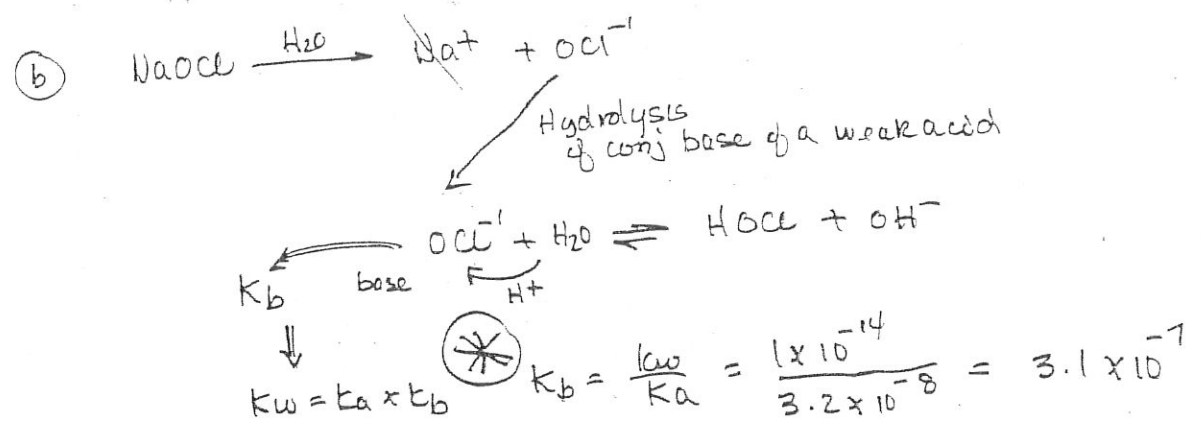 (b) NaOCl —H₂O→ Na⁺ + OCl⁻¹
Hydrolysis
of conj base of a weak acid
OCl⁻¹ + H₂O ⇌ HOCl + OH⁻
Kb base H+
⇓
Kw = Ka × Kb * Kb = Kw/Ka = 1 × 10⁻¹⁴/3.2 × 10⁻⁸ = 3.1 × 10⁻⁷